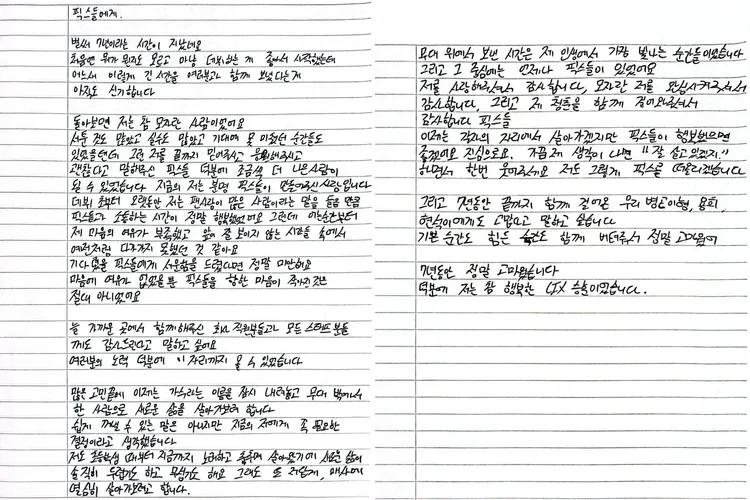 픽스들에게.
벌써 7년이라는 시간이 지났네요
처음엔 뭐가 뭔지도 모르고 마냥 데뷔하는 게 좋아서 시작했는데
어느새 이렇게 긴 시간을 여러분과 함께 보냈다는게
아직도 신기합니다
돌아보면 저는 참 모자란 사람이었어요
서툰 것도 많았고 실수도 많았고 기대에 못 미쳤던 순간들도
있었을텐데 그런 저를 끝까지 믿어주시고 응원해주시고
괜찮다고 말해주신 픽스들 덕분에 조금씩 더 나은사람이
될 수 있었습니다 지금의 저는 분명 픽스들이 만들어주신 사람입니다
데뷔 초부터 오랫동안 저는 팬사랑이 많은 사람이라는 말을 들을 만큼
픽스들과 소통하는 시간이 정말 행복했었어요 그런데 어느순간부터
제 마음의 여유가 부족했고 앞이 잘 보이지 않는 시간들 속에서
예전처럼 다가가지 못했던 것 같아요
기다렸을 픽스들에게 서운함을 드렸다면 정말 미안해요
마음에 여유가 없었을 뿐 픽스들을 향한 마음이 작아진것은
절대 아니었어요
늘 가까운 곳에서 함께해주신 회사 직원분들과 모든 스태프 분들
께도 감사드린다고 말하고 싶어요
여러분의 노력 덕분에 이 자리까지 올 수 있었습니다
많은 고민끝에 이제는 가수라는 이름을 잠시 내려놓고 무대 밖에서
한 사람으로 새로운 삶을 살아가보려 합니다
쉽게 꺼낼 수 있는 말은 아니지만 지금의 저에게 꼭 필요한
결정이라고 생각했습니다
저도 초등학생 때부터 지금까지 노래하고 춤추며 살아왔기에 새로운 삶이
솔직히 두렵기도 하고 무섭기도 해요 그래도 또 저답게, 매사에
열심히 살아가보려고 합니다.
무대 위에서 보낸 시간은 제 인생에서 가장 빛나는 순간들이었습니다
그리고 그 중심에는 언제나 픽스들이 있었어요
저를 사랑해주셔서 감사합니다, 모자란 저를 완성시켜주셔서
감사합니다, 그리고 제 청춘을 함께 걸어와주셔서
감사합니다 픽스들
이제는 각자의 자리에서 살아가겠지만 픽스들이 행복했으면
좋겠어요 진심으로요. 가끔 제 생각이 나면 "잘 살고 있겠지."
하면서 한번 웃어주세요 저도 그렇게 픽스를 떠올리겠습니다.
그리고 7년동안 끝까지 함께 걸어온 우리 병곤이형, 용희,
현석이에게도 고맙다고 말하고 싶습니다
기쁜 순간도 힘든 순간도 함께 버텨줘서 정말 고마웠어
7년동안 정말 고마웠습니다
덕분에 저는 참 행복한 CIX 승훈이었습니다.